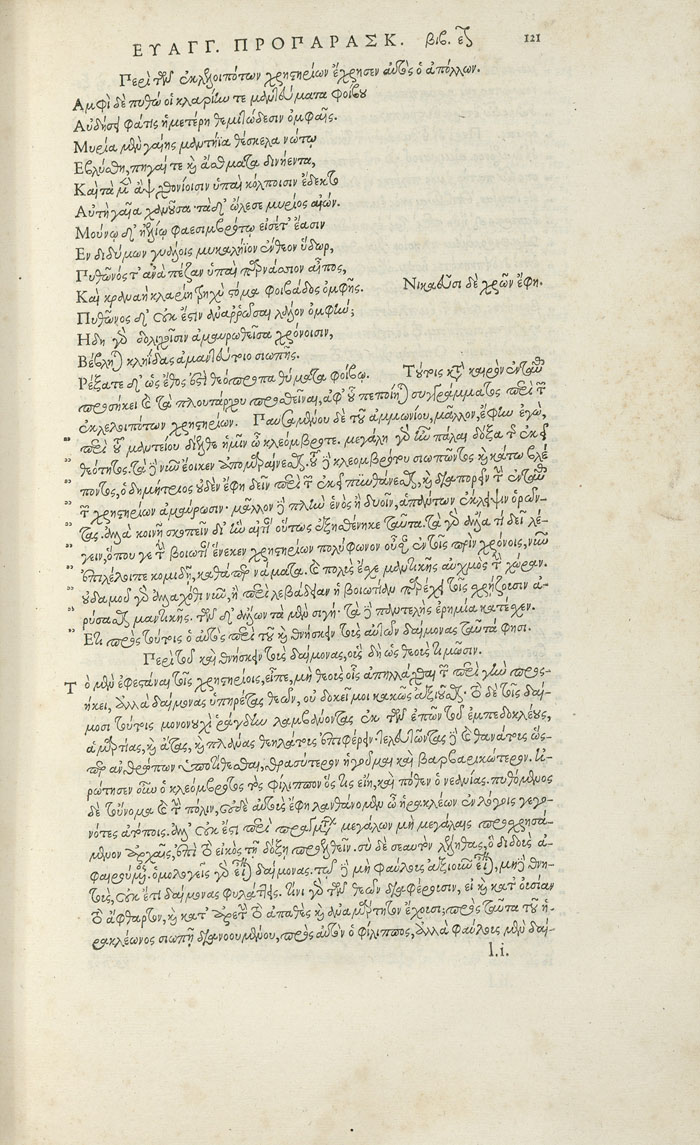 ΕΥΑΓΓ. ΠΡΟΠΑΡΑΣΚ. βιβ. εʹ 121
Περὶ τῶν ἐκλελοιπότων χρηστηρίων ἔχρησεν αὐτὸς ὁ ἀπόλλων.
Αμφὶ δὲ πυθὼ οἱ κλαρίην τε μαντεύματα φοίβου
Αὐδήσει φάτις ἡμετέρη θεμιώδεσιν ὀμφαῖς.
Μυρία μὲν γαίης μαντήϊα θέσκελα νώτῳ
Εβλύσθη, πηγαί τε καὶ ἄσθματα δινήεντα,
Καὶ τὰ μὲν ἂψ χθονίοισιν ὑπαὶ κόλποισιν ἔδεκτο
Αὐτὴ γαῖα χανοῦσα· τὰ δ' ὤλεσε μυρίος αἰών.
Μούνῳ δ' ἠελίῳ φαεσιμβρότῳ εἰσέτ' ἔασιν
Εν διδύμων γυάλοις μυκαλήϊον ἔνθεον ὕδωρ,
Πυθῶνός τ' ἀνὰ πέζαν ὑπαὶ παρνάσιον αἶπος,
Καὶ κραναὴ κλαρίη τρηχὺ στόμα φοιβάδος ὀμφῆς. Νικαεῦσι δὲ χρῶν ἔφη.
Πυθῶνος δ' οὐκ ἔστιν ἀναρρῶσαι λάλον ὀμφήν;
Ηδη γὰρ δολιχοῖσιν ἀμαυρωθεῖσα χρόνοισιν,
Βέβληται κληῖδας ἀμαντεύτοιο σιωπῆς.
Ρέξατε δ' ὡς ἔθος ἐστὶ θεόπροπα θύματα φοίβῳ. Τούτοις κατὰ καιρὸν ἐνταῦθα
προσήκει καὶ τὰ πλουτάρχου προσθεῖναι, ἀφ' οὗ πεποίηται συγγράμματος περὶ τῶν
ἐκλελοιπότων χρηστηρίων. Παυσαμένου δὲ τοῦ ἀμμωνίου, μᾶλλον, ἔφην ἐγὼ,
περὶ τοῦ μαντείου δίελθε ἡμῖν ὦ κλεόμβροτε. μεγάλη γὰρ ἦν πάλαι δόξα τῆς ἐκεῖ
θειότητος. τὰ δὲ νῦν ἔοικεν ἀπομαραίνεσθαι. τοῦ δὲ κλεομβρότου σιωπῶντος καὶ κάτω βλέ-
ποντος, ὁ δημήτριος οὐδὲν ἔφη δεῖν περὶ τῶν ἐκεῖ πυνθάνεσθαι, καὶ διαπορεῖν τὴν ἐνταῦθα
τῶν χρηστηρίων ἀμαύρωσιν· μᾶλλον δὲ πλὴν ἑνὸς ἢ δυοῖν, ἁπάντων ἔκλειψιν ὁρῶν-
τας. ἀλλὰ κοινῇ σκοπεῖν δι' ἣν αἰτίαν οὕτως ἐξησθένηκε ταῦτα. τὰ γὰρ ἄλλα τί δεῖ λέ-
γειν, ὅπου γε τὴν βοιωτίαν ἕνεκεν χρηστηρίων πολύφωνον οὖσαν ἐν τοῖς πρὶν χρόνοις, νῦν
ἐπιλέλοιπε κομιδῇ, καθάπερ νάματα. καὶ πολὺς ἔσχε μαντικῆς αὐχμὸς τὴν χώραν.
οὐδαμοῦ γὰρ ἀλλαχόθι νῦν, ἢ περὶ λεβάδειαν ἡ βοιωτία παρέχει τοῖς χρῄζουσιν ἀ-
ρύσασθαι μαντικῆς. τῶν δ' ἄλλων τὰ μὲν σιγὴ· τὰ δὲ παντελὴς ἐρημία κατέσχεν.
Ετι πρὸς τούτοις ὁ αὐτὸς περὶ τοῦ καὶ θνήσκειν τοὺς αὐτῶν δαίμονας ταῦτά φησι.
Περὶ τοῦ καὶ θνήσκειν τοὺς δαίμονας, οὓς δὴ ὡς θεοὺς τιμῶσιν.
Τὸ μὲν ἐφεστάναι τοῖς χρηστηρίοις, εἶπε, μὴ θεοὺς οἷς ἀπηλλάχθαι τῶν περὶ γῆν προσ-
ήκει, ἀλλὰ δαίμονας ὑπηρέτας θεῶν, οὐ δοκεῖ μοι κακῶς ἀξιοῦσθαι. τὸ δὲ τοῖς δαί-
μοσι τούτοις μονονουχὶ ῥάγδην λαμβάνοντας ἐκ τῶν ἐπῶν τοῦ ἐμπεδοκλέους,
ἁμαρτίας, καὶ ἄτας, καὶ πλάνας θεηλάτους ἐπιφέρειν· τελευτῶντας δὲ καὶ θανάτους ὥσ-
περ ἀνθρώπων ὑποτίθεσθαι, θρασύτερον ἡγοῦμαι καὶ βαρβαρικώτερον. ἠ-
ρώτησεν οὖν ὁ κλεόμβροτος τὸν φίλιππον ὅστις εἴη, καὶ πόθεν ὁ νεανίας. πυθόμενος
δὲ τοὔνομα καὶ τὴν πόλιν, οὐδὲ αὐτοὺς ἔφη λανθάνομεν ὦ ἡρακλέων ἐν λόγοις γεγο-
νότες ἀτόποις. ἀλλ' οὐκ ἔστι περὶ πραγμάτων μεγάλων μὴ μεγάλαις προσχρησά-
μενον ἀρχαῖς, ἐπὶ τὸ εἰκὸς τῇ δόξῃ προελθεῖν. σὺ δὲ σεαυτὸν λέληθας, ὃ δίδως ἀ-
φαιρούμενος. ὁμολογεῖς γὰρ εἶναι δαίμονας. τῷ δὲ μὴ φαύλους ἀξιοῦν εἶναι, μηδὲ θνη-
τοὺς, οὐκ ἔτι δαίμονας φυλάττεις. τίνι γὰρ τῶν θεῶν διαφέρουσιν, εἰ καὶ κατ' οὐσίαν
τὸ ἄφθαρτον, καὶ κατ' ἀρετὴν τὸ ἀπαθὲς καὶ ἀναμάρτητον ἔχουσι; πρὸς ταῦτα τοῦ ἡ-
ρακλέωνος σιωπῇ διανοουμένου, πρὸς αὐτὸν ὁ φίλιππος, ἀλλὰ φαύλους μὲν δαί-
l.i.